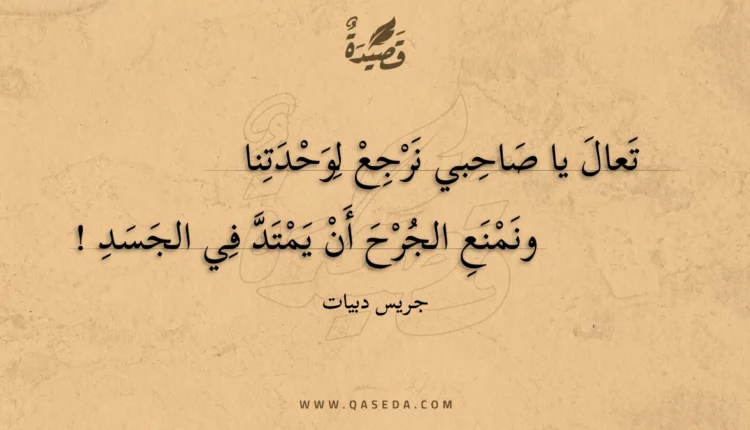 قَصِيدَةٌ
تَعالَ يا صَاحِبي نَرْجِعْ لِوَحْدَتِنا
ونَمْنَعِ الجُرْحَ أَنْ يَمْتَدَّ فِي الجَسَدِ !
جريس دبيات
WWW.QASEDA.COM